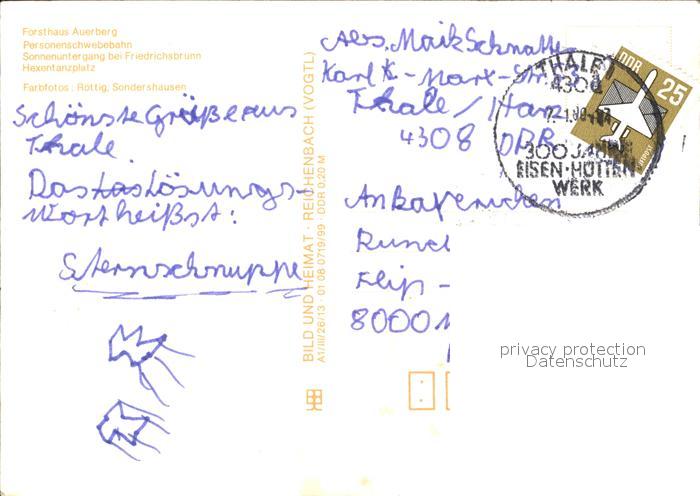 Forsthaus Auerberg
Personenschwebebahn
Sonnenuntergang bei Friedrichsbrunn
Hexentanzplatz
Farbfotos: Röttig, Sondershausen
Schönste Grüße aus
Thale.
Das Lösungs-
wort heißst:
Sternschnuppe
BILD UND HEIMAT · REICHENBACH (VOGTL)
A1/III/26/13 · 01 08 0719/99 · DDR 0,20 M
Abs. Maik Schnatte
Karl - Marx - Str.
Thale / Harz
4308 DDR
An
Rund
Flip -
8000
THALE
4308
300 JAHRE
EISEN-HÜTTEN
WERK
DDR
25
LUFTPOST
privacy protection
Datenschutz